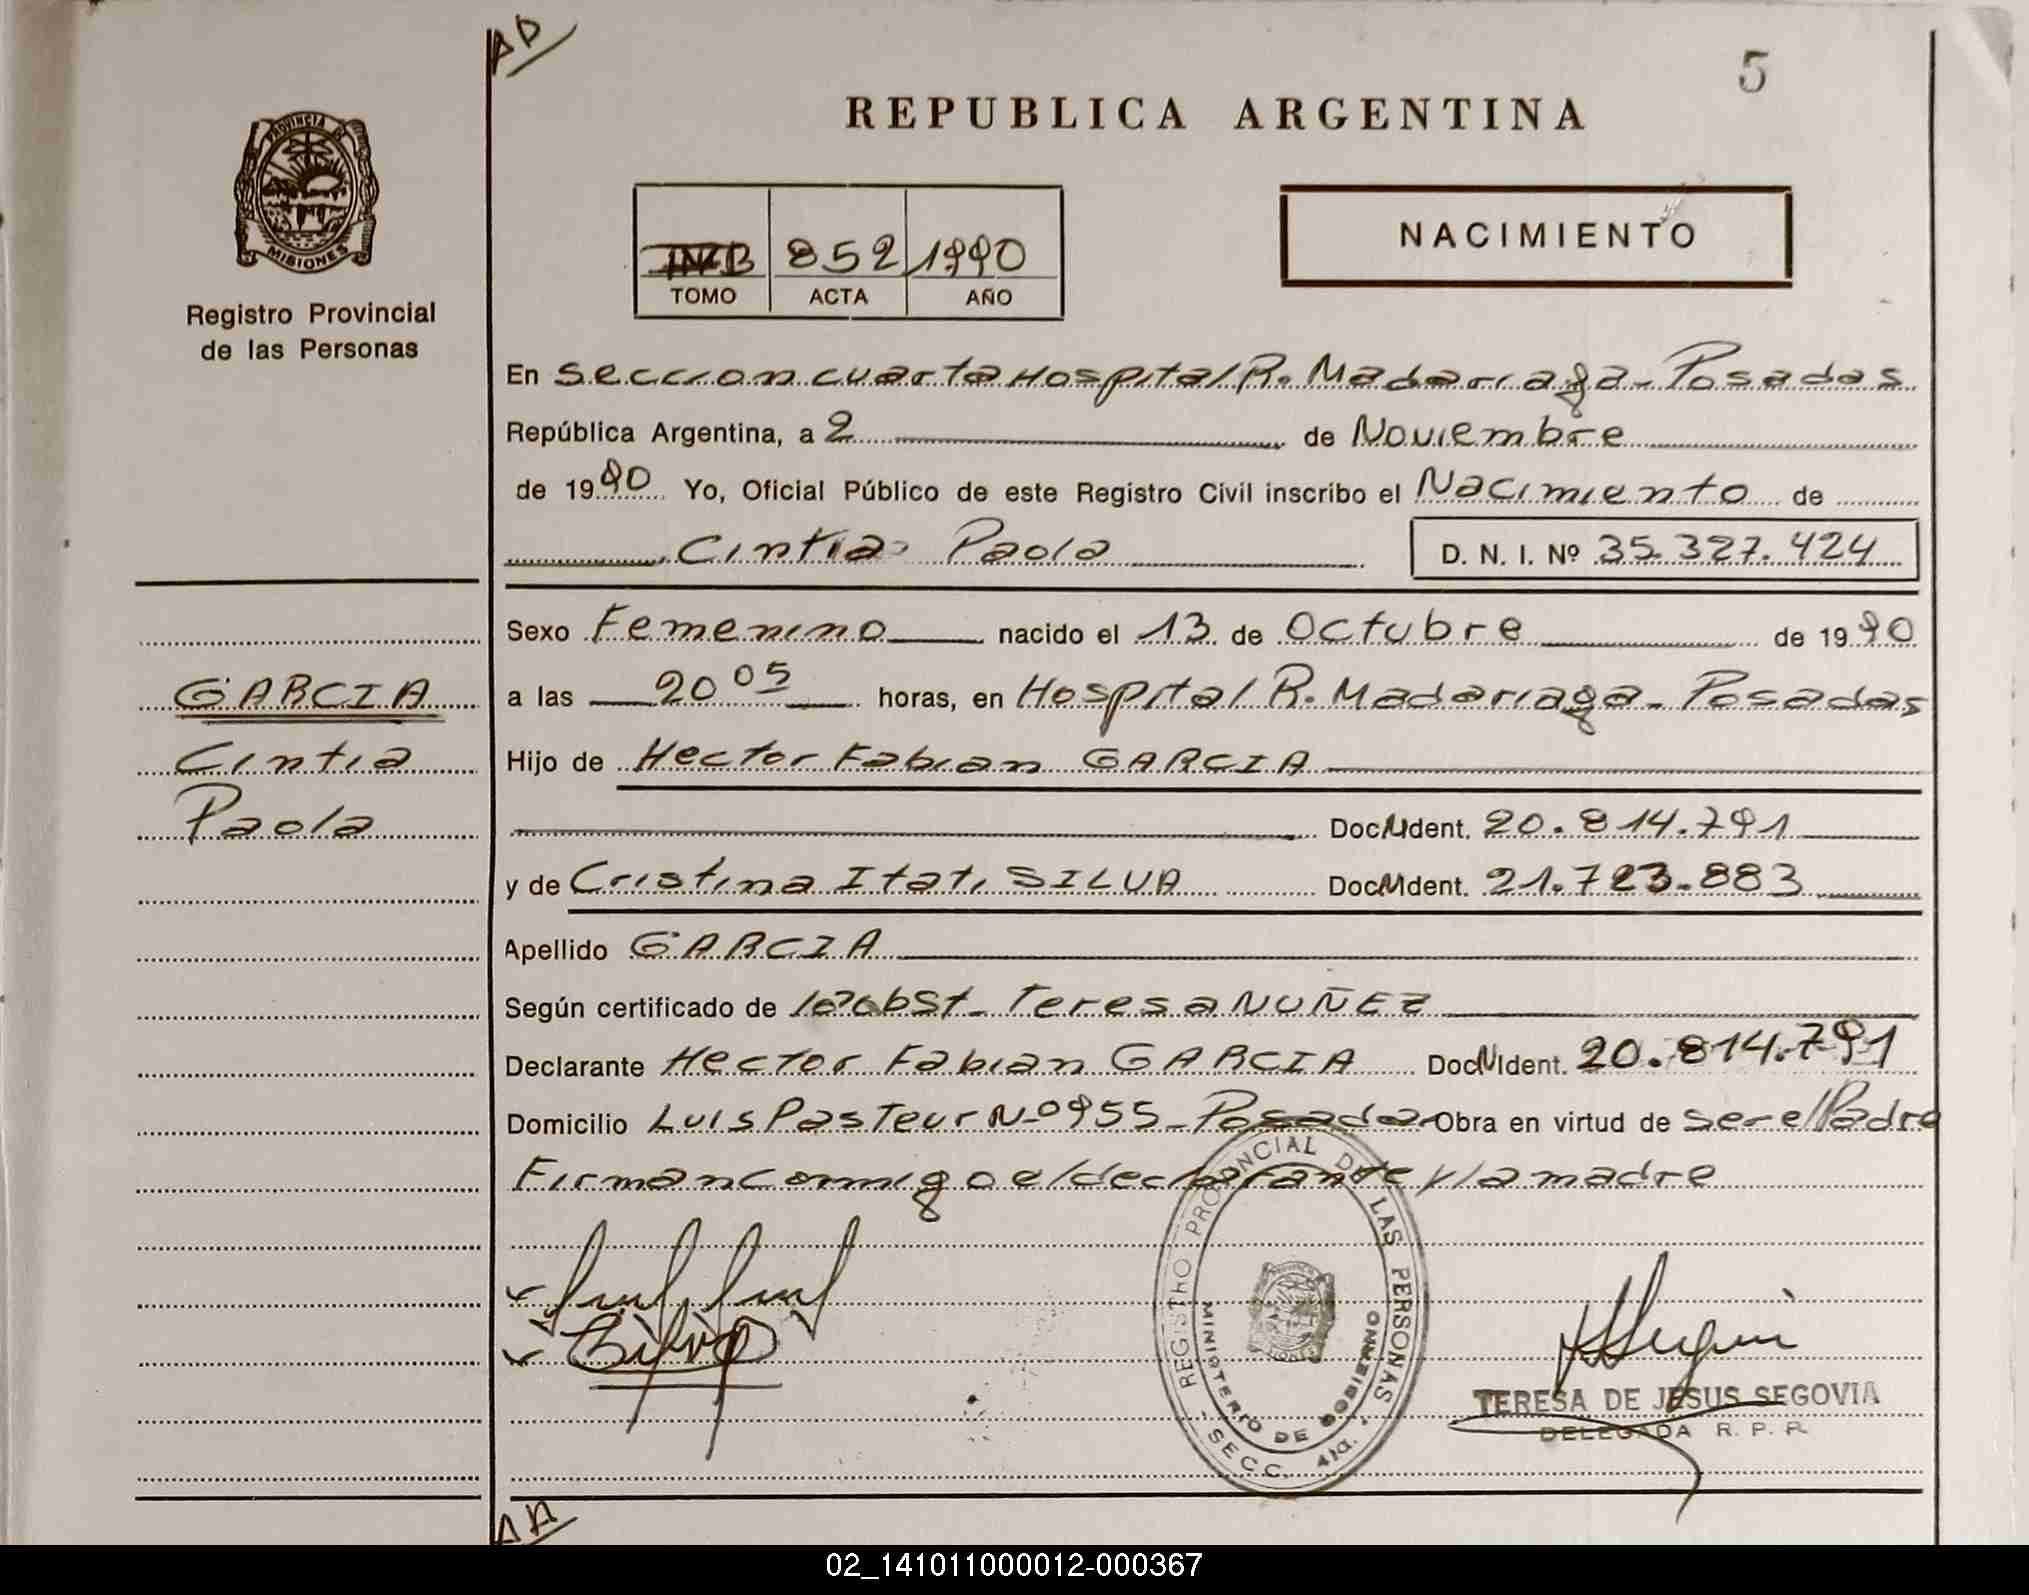 AD
5
REPUBLICA ARGENTINA
PROVINCIA DE
MISIONES
Registro Provincial
de las Personas
852 1990
TOMO ACTA AÑO
NACIMIENTO
En seccion cuarta Hospital R. Madariaga - Posadas
República Argentina, a 2 de Noviembre
de 1990 Yo, Oficial Público de este Registro Civil inscribo el Nacimiento de
Cintia Paola D. N. I. Nº 35.327.424
Sexo Femenino nacido el 13 de Octubre de 1990
a las 20 05 horas, en Hospital R. Madariaga - Posadas
Hijo de Hector Fabian GARCIA
DocNIdent. 20.814.791
y de Cristina Itati SILVA DocNIdent. 21.723.883
Apellido GARCIA
Según certificado de Obst. Teresa NUÑEZ
Declarante Hector Fabian GARCIA DocNIdent. 20.814.791
Domicilio Luis Pasteur Nº 955 - Posadas Obra en virtud de ser el Padre
Firman conmigo el declarante y la madre
GARCIA
Cintia
Paola
REGISTRO PROVINCIAL DE LAS PERSONAS
MINISTERIO DE GOBIERNO
- SECC. 4ta. -
TERESA DE JESUS SEGOVIA
DELEGADA R. P. P.
02_141011000012-000367